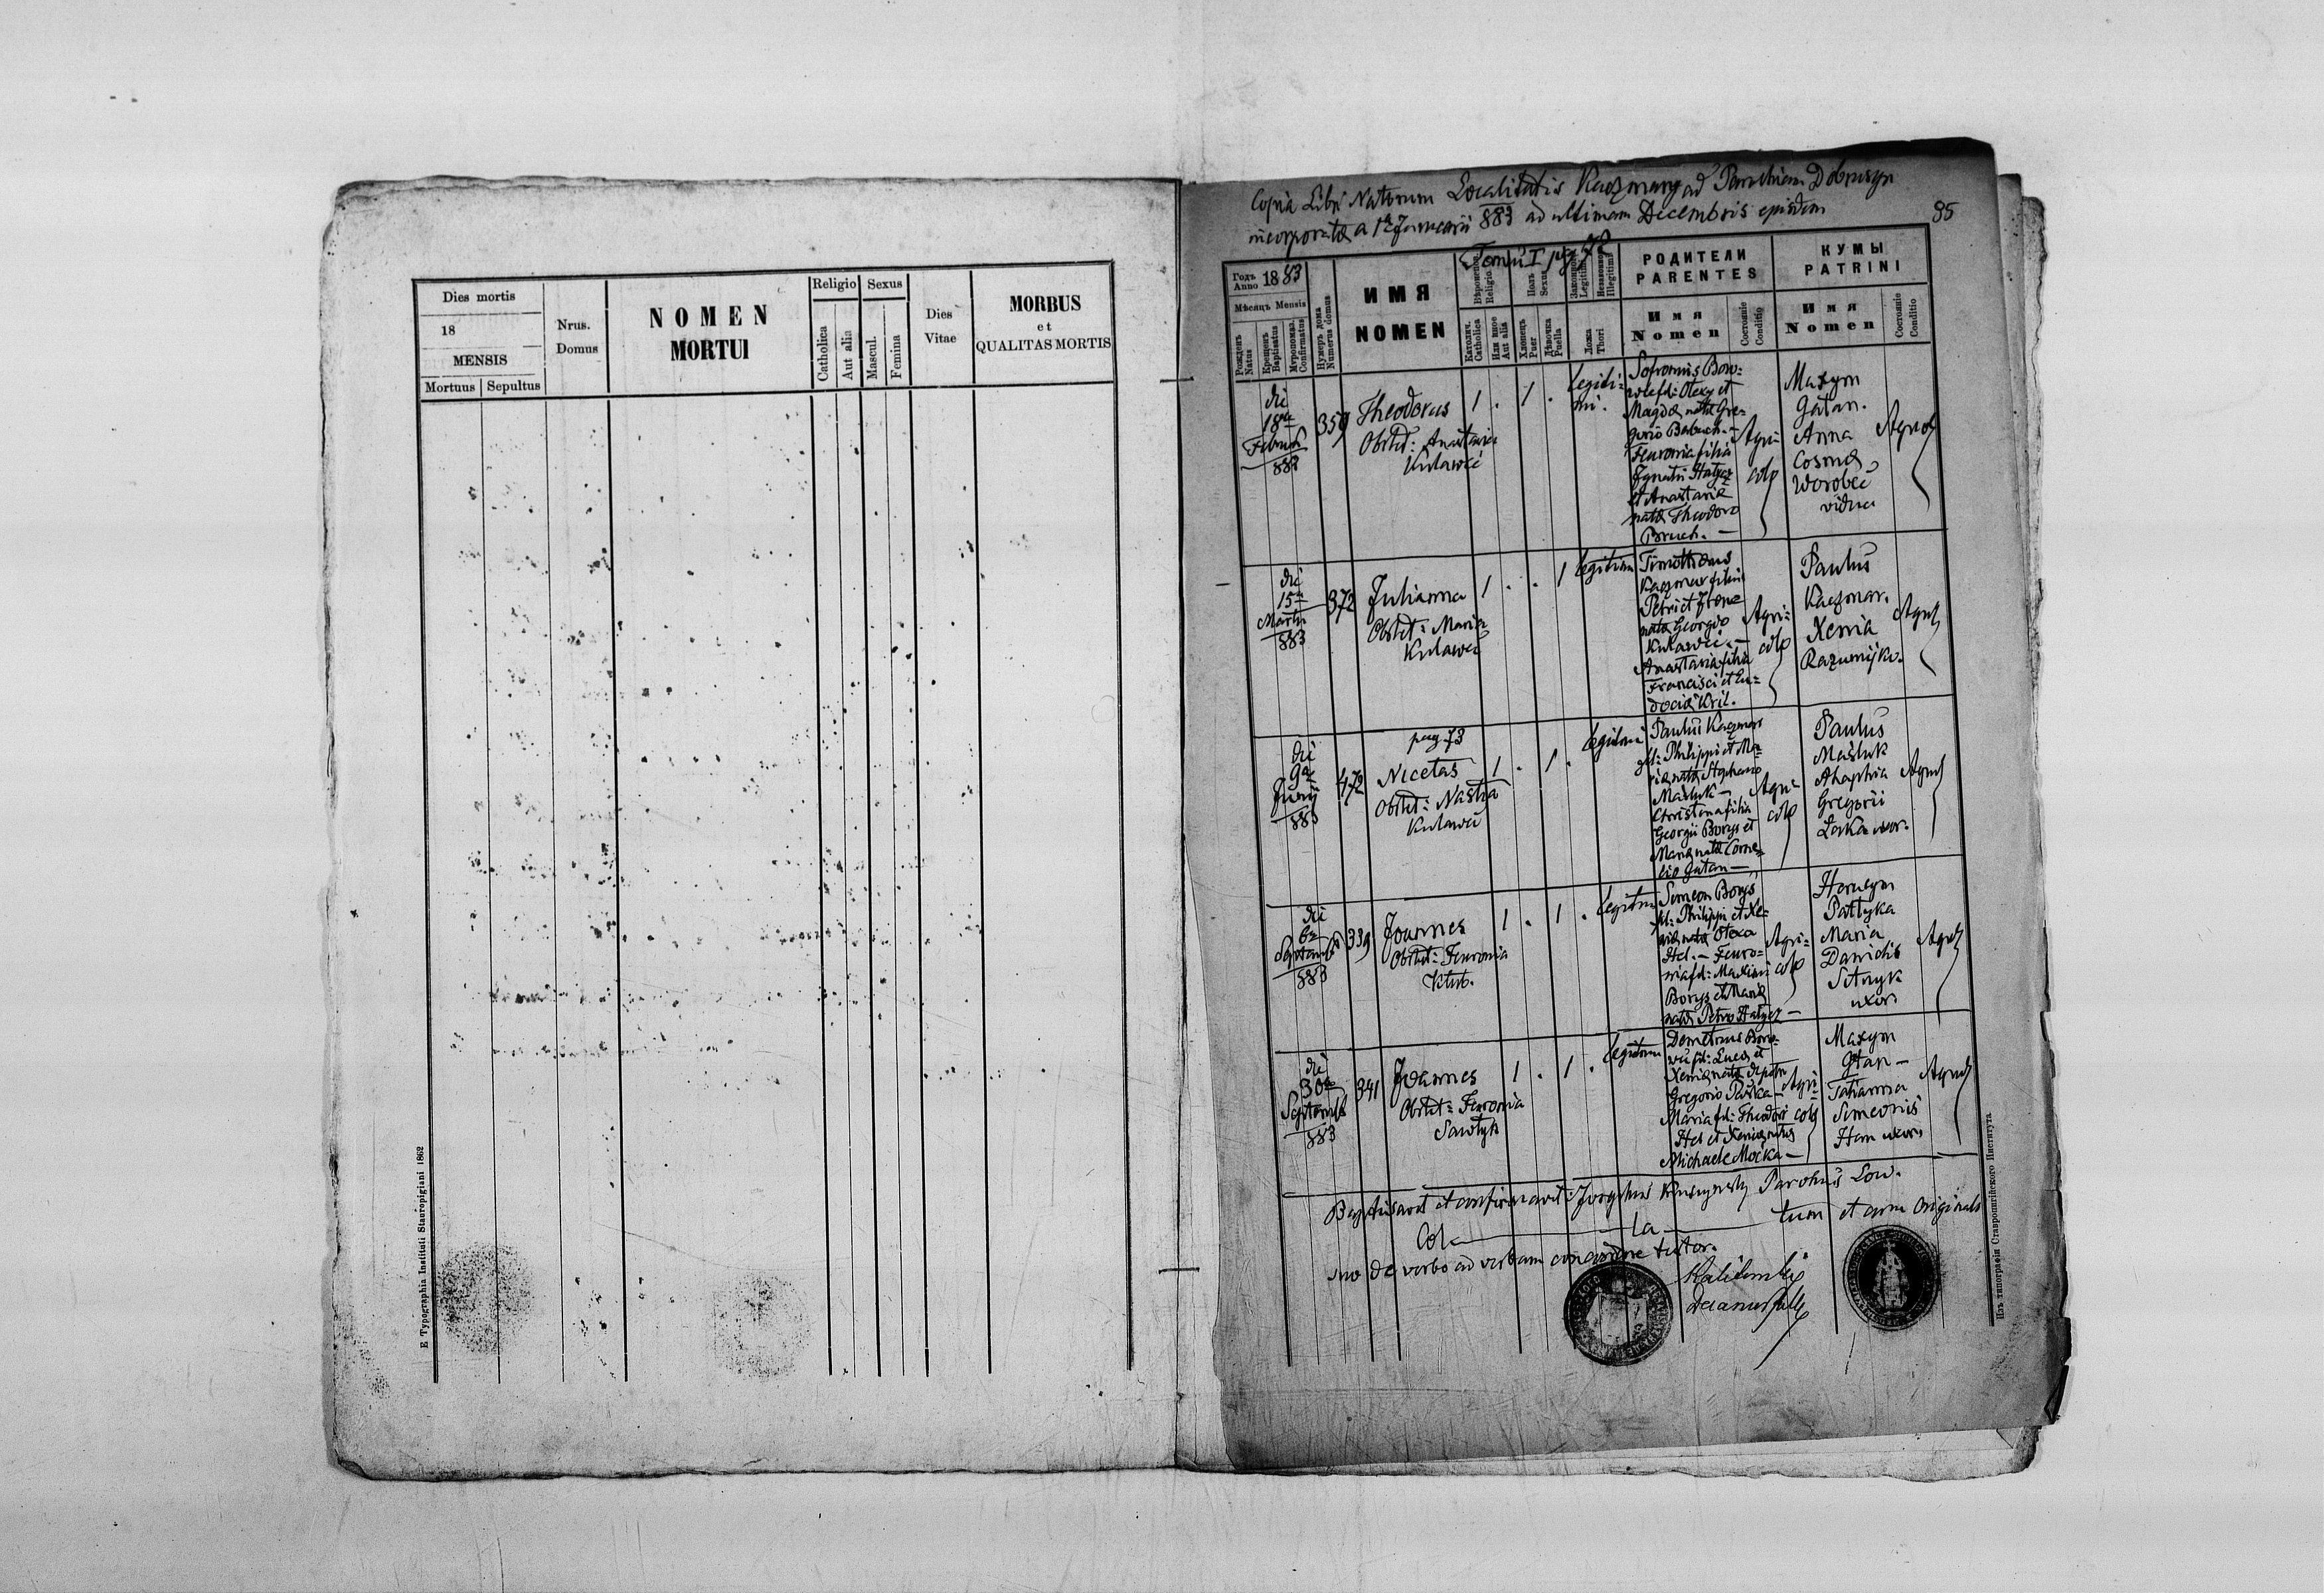 Dies mortis
18
MENSIS
Mortuus
Sepultus
Nrus.
Domus
NOMEN
MORTUI
Religio
Catholica
Aut alia
Sexus
Mascul.
Femina
Dies
Vitae
MORBUS
et
QUALITAS MORTIS
E Typographia Instituti Stauropigiani 1862
Copia Libri Natorum Localitatis Kaczmary ad Parochiam Dobrusyn
incorporatæ a 1a Januarii 883 ad ultimam Decembris ejusdem
95
Tomus I pag 72
Годъ
Anno 1883
Мѣсяць Mensis
Рожденъ
Natus
Крещенъ
Baptisatus
Муропомаз.
Confirmatus
Нумеръ дома
Numerus domus
ИМЯ
NOMEN
Religio
Католич.
Catholica
Или иное
Aut alia
Полъ
Sexus
Хлопецъ
Puer
Дѣвочка
Puella
Legitimi
Illegitimi
Ложа
Thori
РОДИТЕЛИ
PARENTES
Имя
Nomen
Состояніе
Conditio
КУМЫ
PATRINI
Имя
Nomen
Состояніе
Conditio
die
18a
883
359
Theodorus
Obstet: Anastasia
Kulawec
1 . 1 .
legiti=
mi.
Magdæ natæ Gre=
gorio
Feuronia filia
Ignatii Hatycz
et Anastasiæ
natæ Theodoro
Bruch. —
Agri=
colæ
Maxym
Gatan.
Anna
Cosmæ
Worobec
vidua
Agricolæ
die
15a
Martii
883
372
Julianna
Obstet: Maria
Kulawec
1 . . 1
legitimi
Timotheus
Kaczmar filius
Petri et Irenæ
natæ Georgio
Kulawec. —
Anastasia filia
Francisci et Eu=
dociæ Kril.
Agri=
colæ
Paulus
Kaczmar.
Xenia
Razumijko.
Agricolæ
pag 73
die
9a
Junij
883
472
Nicetas
Obstet: Nastia
Kulawec
1 . 1 .
legitimi
Paulus Kaczmar
fil: Philippi et Ma=
riæ natæ Stephano
Masluk —
Christina filia
Georgii Borys et
Mariæ natæ Corne=
lio Gatan —
Agri=
colæ
Paulus
Masluk
Ahaphia
Gregorii
Agricolæ
die
6a
Septembr
883
339
Joannes
Obstet: Feuronia
1 . 1 .
legitimi
Simeon Borys
fil: Philippi et Xe=
niæ natæ Olexa
Hel. — Feuro=
nia fil: Maximi
Borys et Mariæ
natæ Petro Hatycz —
Agri=
colæ
Pattyka
Maria
Danielis
Sitnyk
uxor
Agricolæ
die
30a
Septembr
883
341
Joannes
Obstet: Feuronia
1 . 1 .
legitimi
Xeniæ natæ
Gregorio
Maria fil: Theodori
Hel et Xeniæ natæ
Michaele Mocka —
Agri=
colæ
Maxym
Gtan —
Tatianna
Simeonis
Ham uxor
Agricolæ
Baptisavit et confirmavit: Parochus Loci.
Col — la — tum et cum Originali
suo de verbo ad verbum concordare testor.
Изъ типографіи Ставропигійского Института